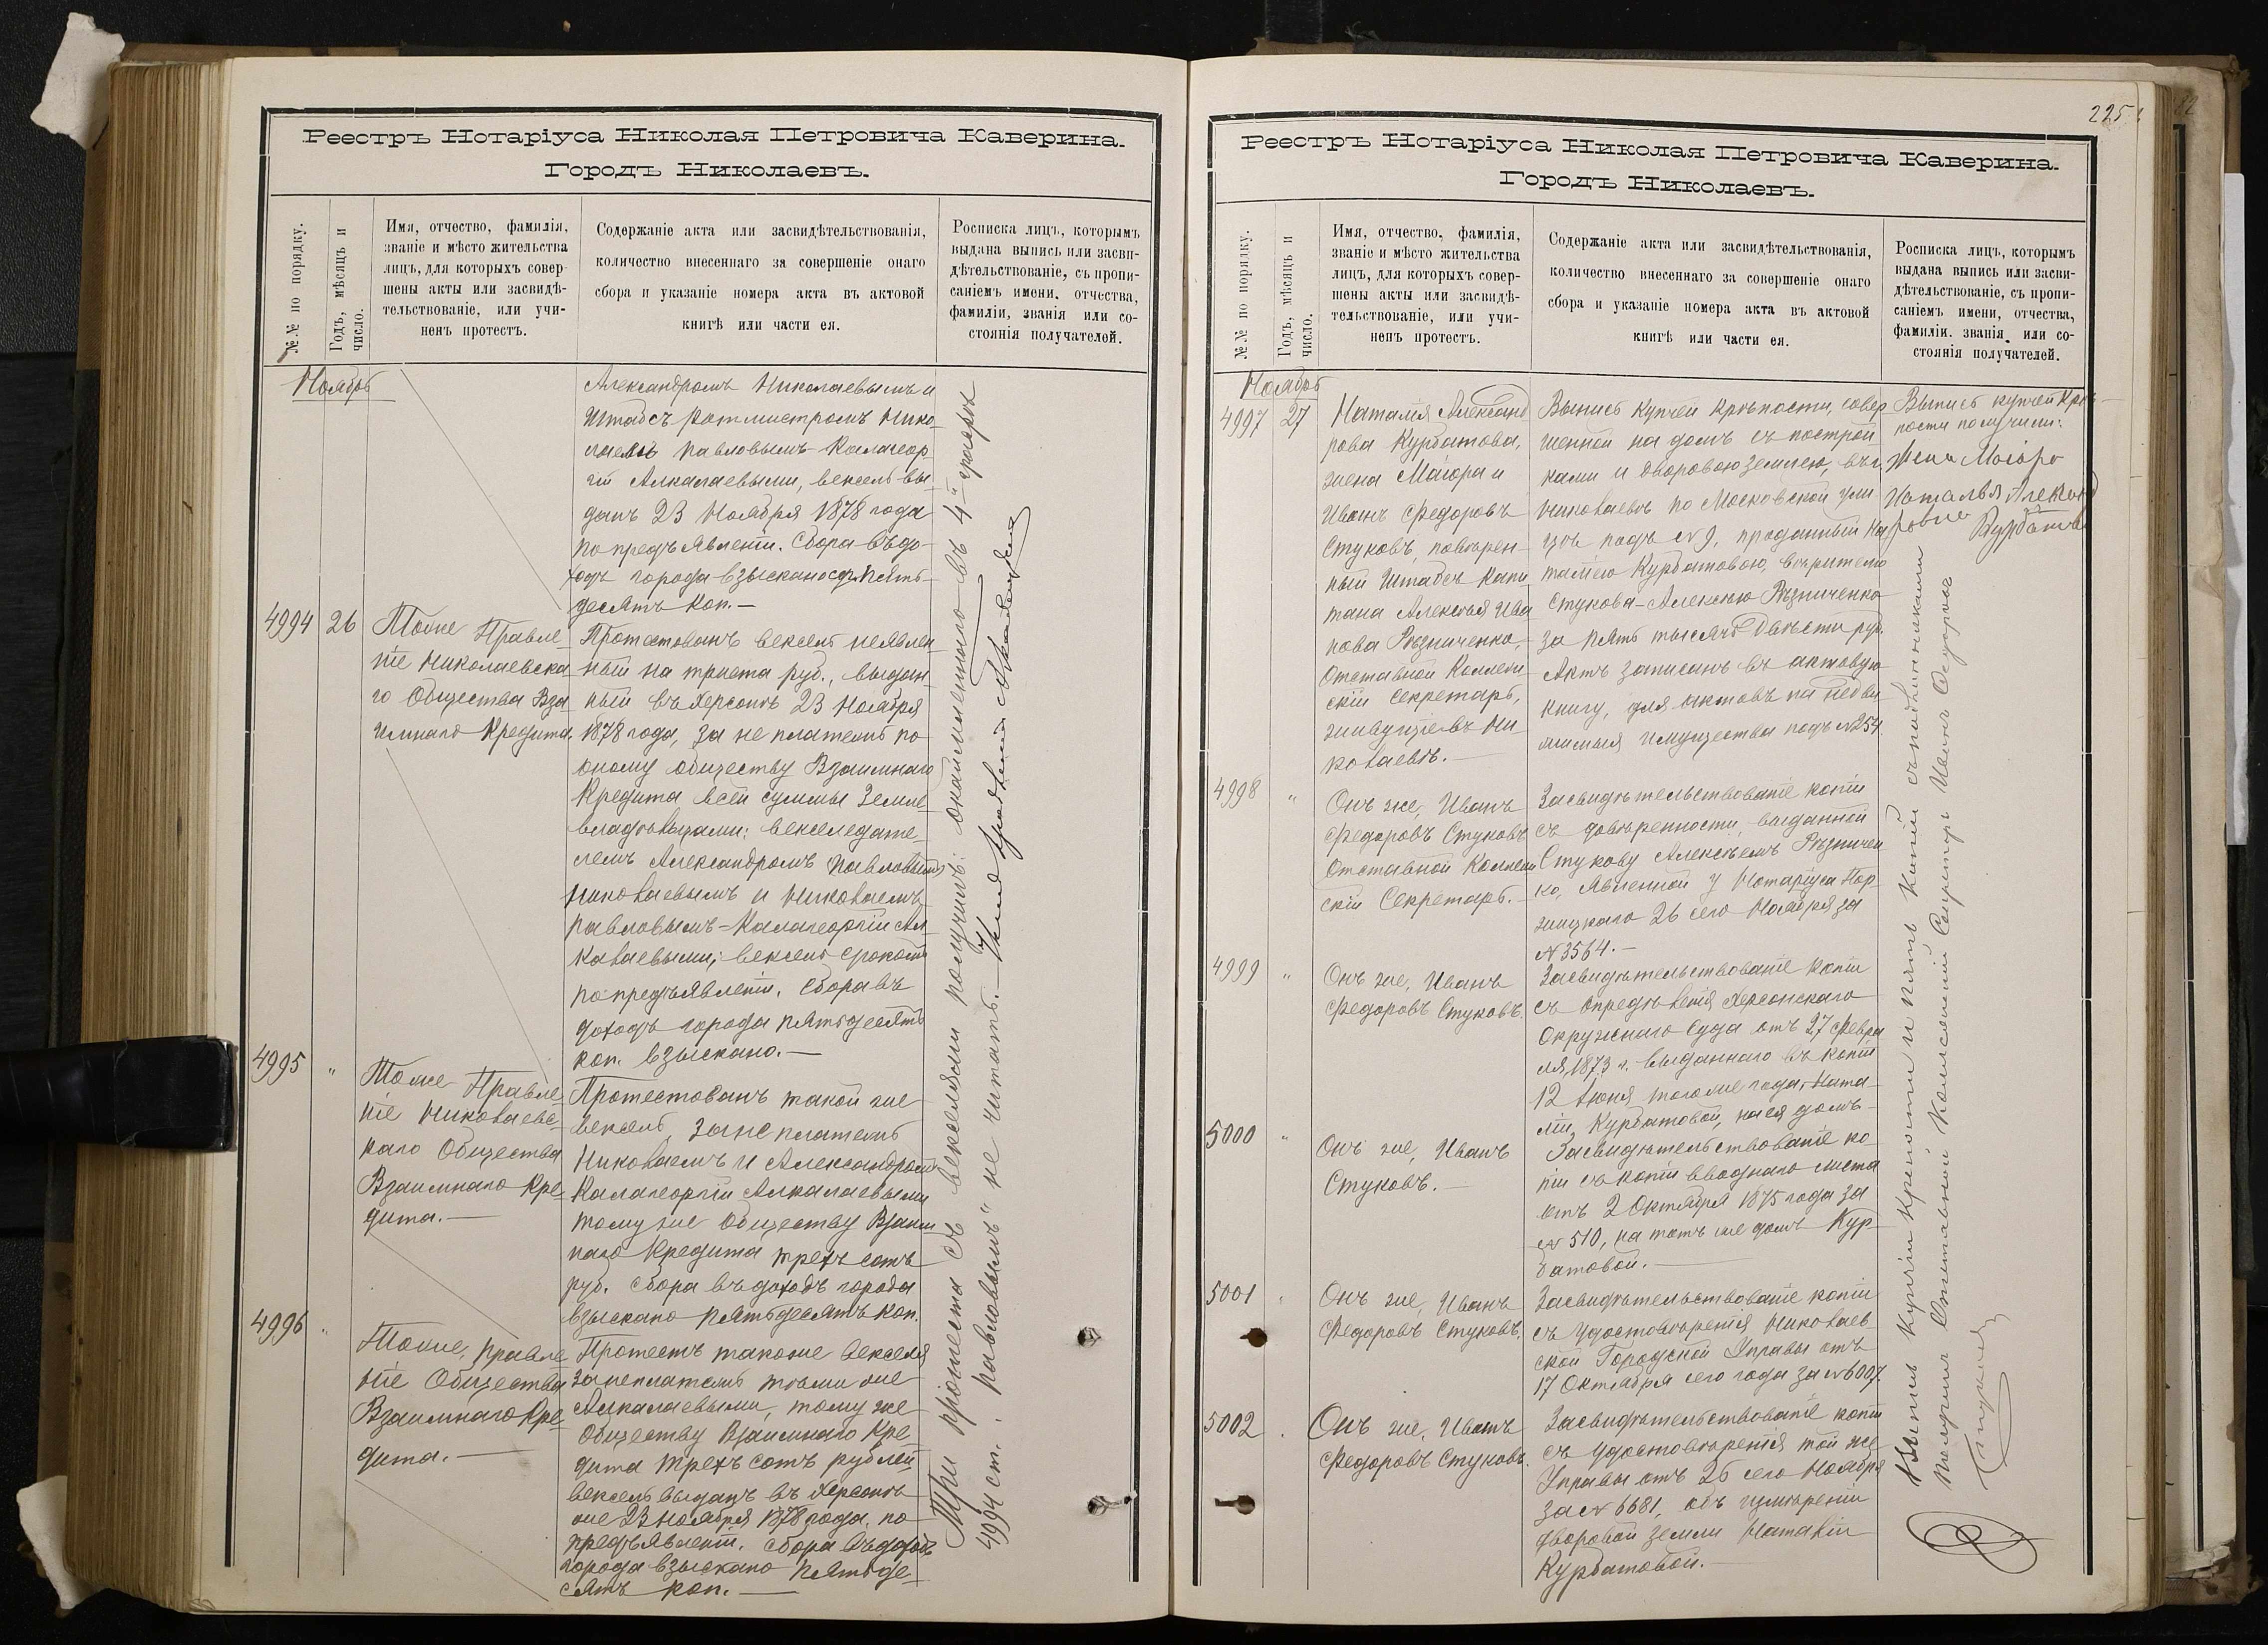 Реестръ Нотаріуса Николая Петровича Каверина.
Городъ Николаевъ.
№№ по порядку.
Годъ, мѣсяцъ и
число.
Имя, отчество, фамилія,
званіе и мѣсто жительства
лицъ, для которыхъ совер-
шены акты или засвидѣ-
тельствованіе, или учи-
ненъ протестъ.
Содержаніе акта или засвидѣтельствованія,
количество внесеннаго за совершеніе онаго
сбора и указаніе номера акта въ актовой
книгѣ или части ея.
Росписка лицъ, которымъ
выдана выпись или засви-
дѣтельствованіе, съ пропи-
саніемъ имени, отчества,
фамиліи, званія или со-
стоянія получателей.
Ноябрь
Александромъ Николаевымъ и
Штабсъ Ротмистромъ Нико-
лаемъ Павловымъ Калагеор-
гій Алкалаевыми, вексель вы-
данъ 23 Ноября 1878 года
по предъявленіи. Сбора въ до-
ходъ города взыскано пять-
десятъ коп.—
4994
26
Тоже Правле-
ніе Николаевска-
го Общества Вза-
имнаго Кредита.
Протестованъ вексель неявлен-
ный на триста руб., выдан-
ный въ Херсонѣ 23 Ноября
1878 года, за не платежъ по
оному обществу Взаимнаго
Кредита всей суммы Земле-
владѣльцами: векселедате-
лемъ Александромъ Павловымъ
Николаевымъ и Николаемъ
Павловымъ-Калагеоргій Ал-
калаевыми; вексель срокомъ
по предъявленіи. Сбора въ
доходъ города пятьдесятъ
коп. взыскано.—
4995
"
Тоже Правле-
ніе Николаевс-
каго Общества
Взаимнаго Кре-
дита.—
Протестованъ такой же
вексель, за не платежъ
Николаемъ и Александромъ
Калагеоргій Алкалаевыми
тому же Обществу Взаим-
наго Кредита трехъ сотъ
руб. Сбора въ доходъ города
взыскано пятьдесятъ коп.
4996
"
Тоже, Правле-
ніе Общества
Взаимнаго Кре-
дита.—
Протестъ такоже векселя
за неплатежъ тѣми же
Алкалаевыми, тому же
Обществу Взаимнаго Кре-
дита трехъ сотъ рублей
вексель выданъ въ Херсонѣ
же 23 Ноября 1878 года, по
предъявленіи. Сбора въ доходъ
города взыскано пятьде-
сятъ коп.—
Три протеста съ векселями получилъ: окаймленнаго въ 4й графѣ
4994 ст. "Павловымъ" не читать.—
225
Реестръ Нотаріуса Николая Петровича Каверина.
Городъ Николаевъ.
№№ по порядку.
Годъ, мѣсяцъ и
число.
Имя, отчество, фамилія,
званіе и мѣсто жительства
лицъ, для которыхъ совер-
шены акты или засвидѣ-
тельствованіе, или учи-
ненъ протестъ.
Содержаніе акта или засвидѣтельствованія,
количество внесеннаго за совершеніе онаго
сбора и указаніе номера акта въ актовой
книгѣ или части ея.
Росписка лицъ, которымъ
выдана выпись или засви-
дѣтельствованіе, съ пропи-
саніемъ имени, отчества,
фамиліи. званія или со-
стоянія получателей.
Ноябрь
4997
27
Наталія Александ
рова Курбатова,
жена Маіора и
Иванъ Федоровъ
Стуковъ, повѣрен-
ный Штабсъ Капи
тана Алексѣя Ива
нова Рѣзниченко,
Отставной Коллеж
скій Секретарь,
живущіе въ Ни
колаевѣ.—
Выпись купчей крѣпости, совер
шенной на домъ съ построй
ками и дворовою землею, въ г.
Николаевѣ по Московской ули
цѣ подъ №9, проданный На
таліею Курбатовою, вѣрителю
Стукова-Алексѣю Рѣзниченко
за пять тысячъ двѣсти руб.
Актъ записанъ въ актовую
книгу, для актовъ на недви
жимыя имущества подъ №254.
Выпись купчей крѣ-
пости получили:
жена Маіора
Наталья Александ
ровна Курбатова
4998
"
Онъ же, Иванъ
Федоровъ Стуковъ
Отставной Коллеж
скій Секретарь.—
Засвидѣтельствованіе копіи
съ довѣренности, выданной
Стукову Алексѣемъ Рѣзничен
ко, явленной у Нотаріуса Пор-
жицкаго 26 сего Ноября за
№3564.—
4999
"
Онъ же, Иванъ
Федоровъ Стуковъ.
Засвидѣтельствованіе копіи
съ опредѣленія Херсонскаго
Окружнаго Суда отъ 27 Февра
ля, 1873 г. выданнаго въ копіи
12 Іюня того же года, Ната-
ліи Курбатовой, на ея домъ—
5000
"
Онъ же, Иванъ
Стуковъ.—
Засвидѣтельствованіе ко-
піи съ копіи вводнаго листа
отъ 2 Октября 1875 года за
№ 510, на тотъ же домъ Кур-
батовой.—
5001
Онъ же, Иванъ
Федоровъ Стуковъ.
Засвидѣтельствованіе копіи
съ удостовѣренія Николаев
ской Городской Управы отъ
17 Октября сего года за №6007.
5002
Онъ же, Иванъ
Федоровъ Стуковъ.
Засвидѣтельствованіе копіи
съ удостовѣренія той же
Управы отъ 26 сего Ноября
за № 6681, объ измѣреніи
дворовой земли Наталіи
Курбатовой.—
Выпись купчіи крепости и пять копій съ подлинниками
получилъ Отставной Коллежскій Секретарь Иванъ Федоровъ
Стуковъ